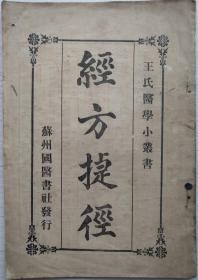 王氏醫學小叢書
經方捷徑
蘇州國醫書社發行